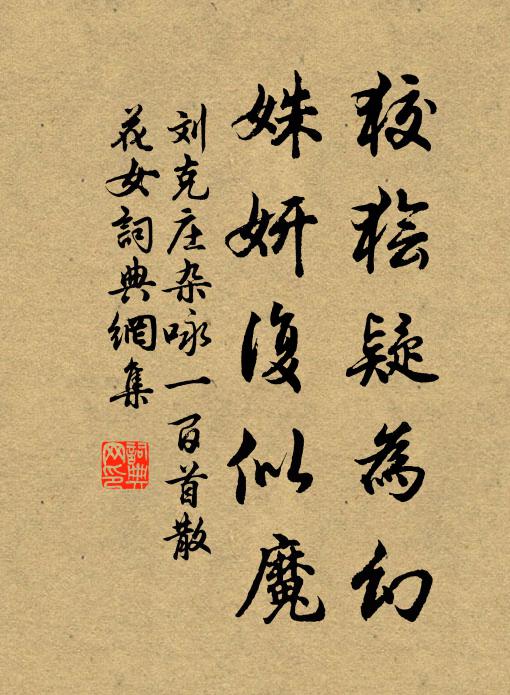 狡狯疑為幻
姝妍復似魔
刘克庄杂咏一百首散
花女詞典網集
詞典
网印